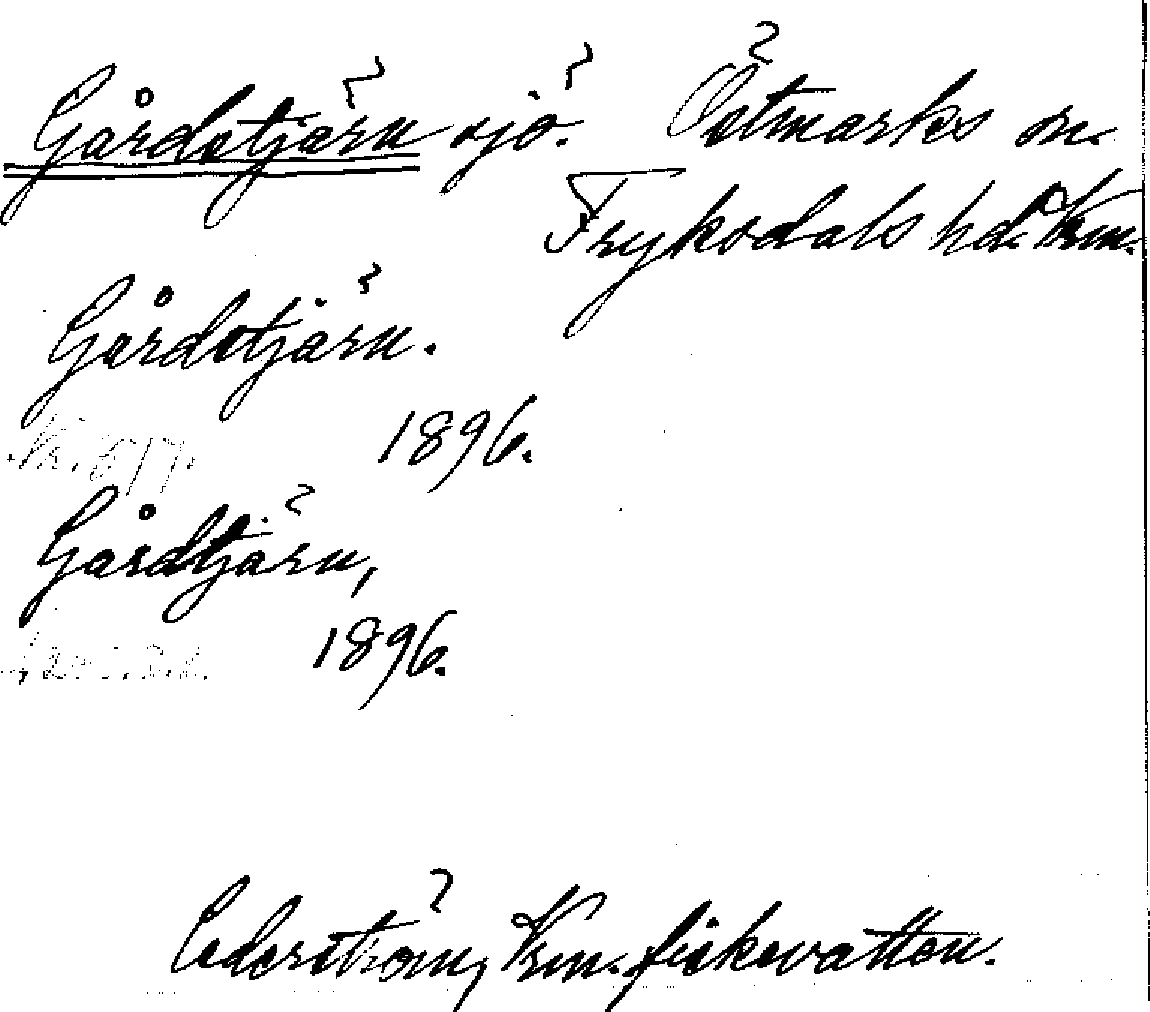 Gårdstjärn sjö. Östmarks sn.
Fryksdals hd. Vrm.
Gårdstjärn.
1896.
Gårdtjärn,
1896.
Cederström, Vrm. fiskevatten.